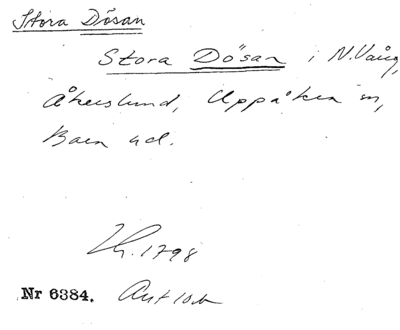 Stora Dösan
Stora Dösan i N. Vång,
Åkerslund, Uppåkra sn,
Bara hd.
1798
Nr 6384.